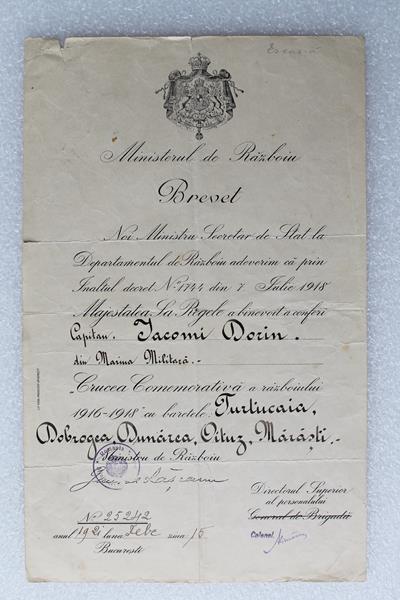 Ministerul de Război
Brevet
Noi Ministru Secretar de Stat la
Departamentul de Război adeverim că prin
Inaltul decret No 1744 din 7 Iulie 1918
Majestatea Sa Regele a binevoit a conferi
Capitan. Iacomi Dorin.
din Marina Militară.-
„Crucea Comemorativă a războiului
1916-1918" cu baretele Turtucaia,
Dobrogea, Dunărea, Oituz, Mărăști.-
Ministru de Război
Directorul Superior
al personalului
General de Brigadă
Colonel
No 25242
anul 1921 luna Febr. ziua 15
București